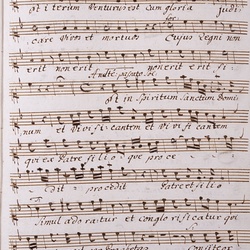 et iterum Venturus est Cum gloria judi:
care Vivos et mortuos Cujus Regni non
erit non erit non erit erit fi:
Et in Spiritum Sanctum Domi
num et Vivificantem et vivificantem
qui ex Patre filioque proce
dit procedit Patre et filio
Simul adoratur et conglorificatur qui